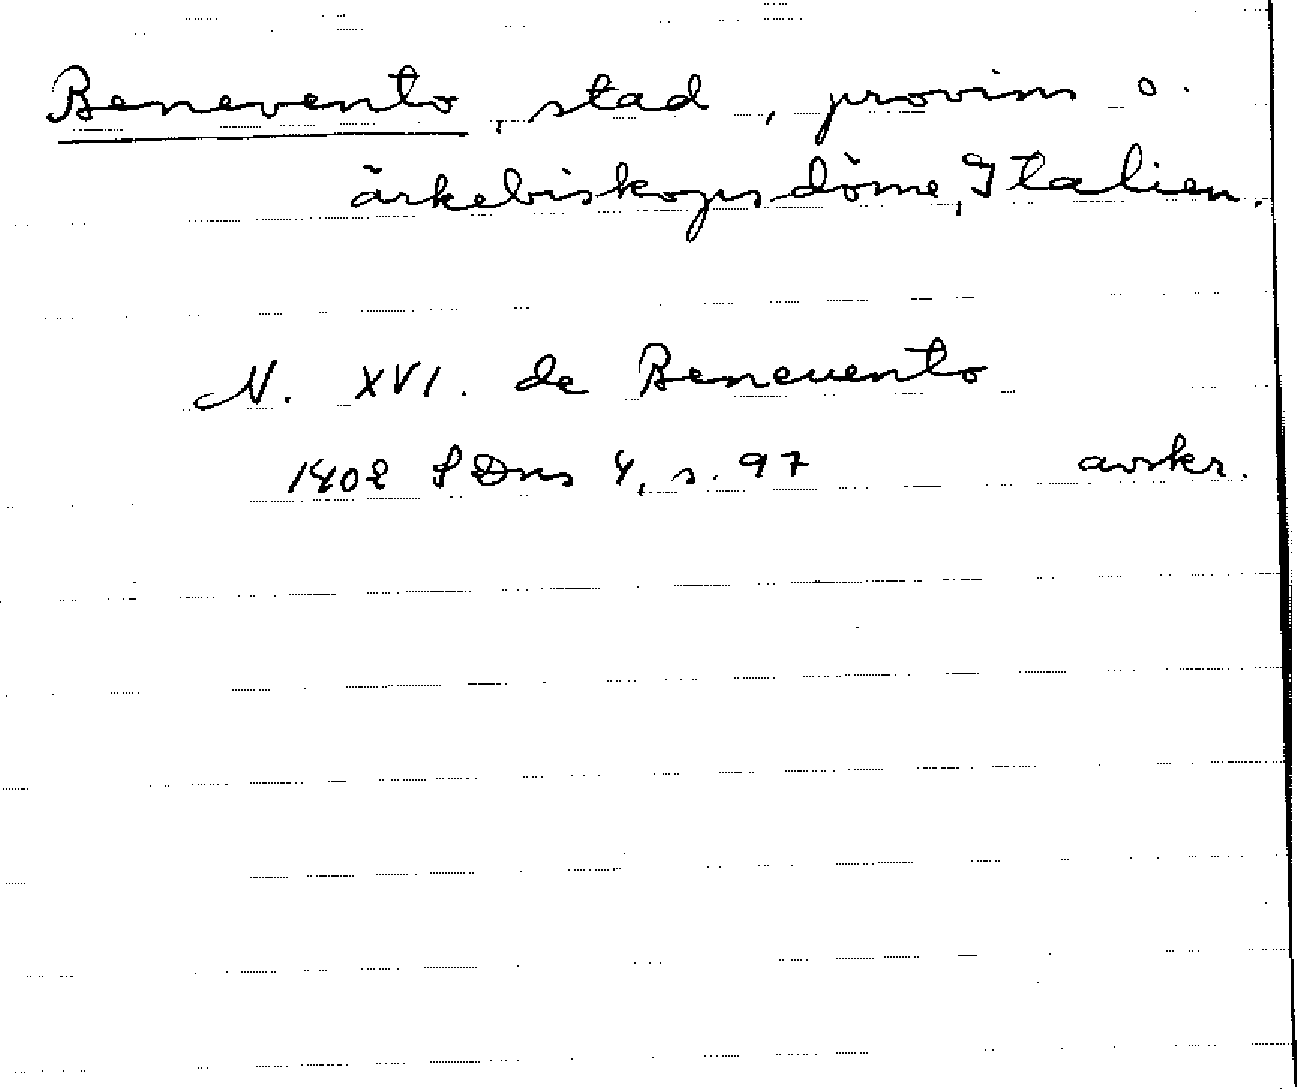 Benevento, stad, provins o.
ärkebiskopsdöme, Italien.
N. XVI. de Beneuento
1402 SDns 4, s. 97 avskr.